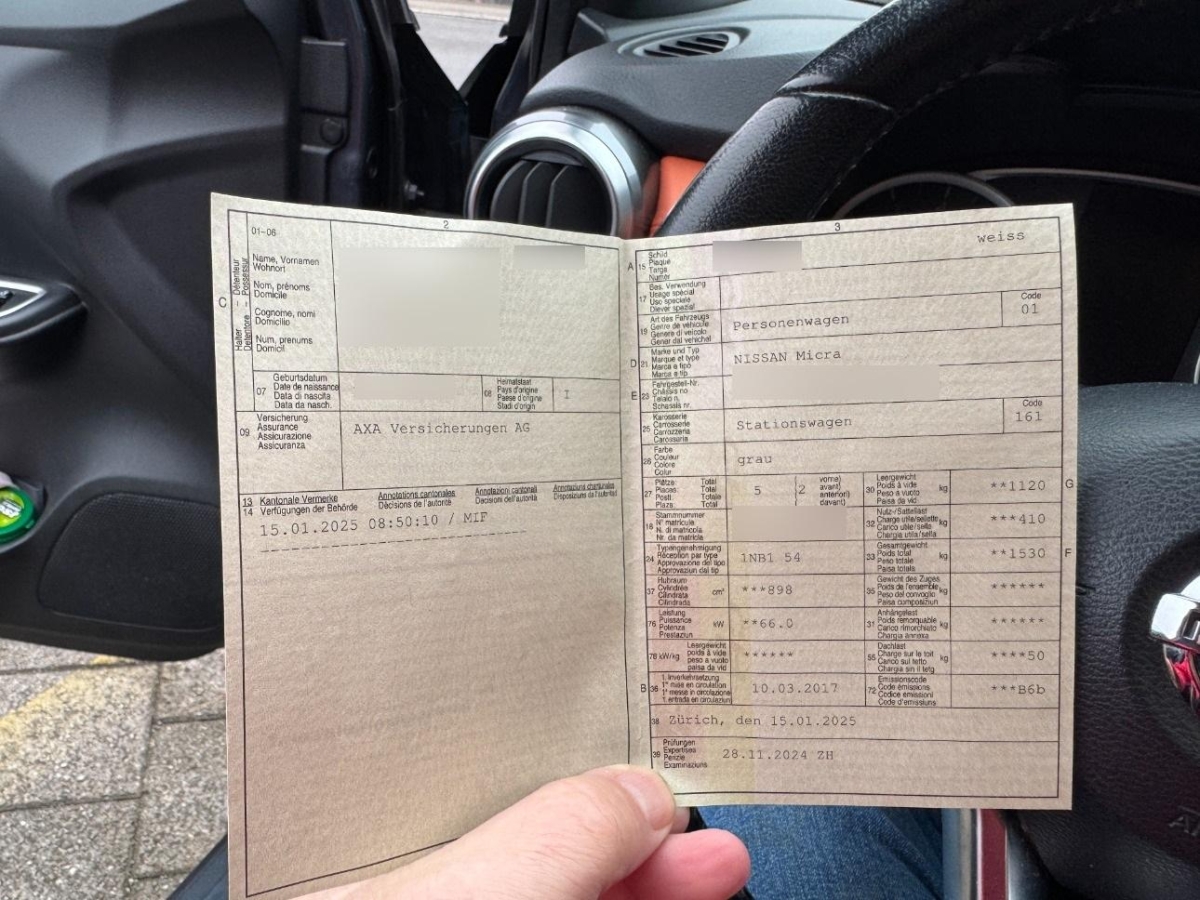 2
01-06
C
Halter Détenteur
Detentore Possessur
Name, Vornamen
Wohnort
Nom, prénoms
Domicile
Cognome, nomi
Domicilio
Num, prenums
Domicil
07
Geburtsdatum
Date de naissance
Data di nascita
Data da nasch.
08
Heimatstaat
Pays d'origine
Paese d'origine
Stadi d'origin
I
09
Versicherung
Assurance
Assicurazione
Assicuranza
AXA Versicherungen AG
13 Kantonale Vermerke
14 Verfügungen der Behörde
Annotations cantonales
Décisions de l'autorité
Annotazioni cantonali
Decisioni dell'autorità
Annotaziuns chantunalas
Disposiziuns da l'autoritad
15.01.2025 08:50:10 / MIF
3
A 15
Schild
Plaque
Targa
Numer
weiss
17
Bes. Verwendung
Usage spécial
Uso speciale
Diever spezial
19
Art des Fahrzeugs
Genre de véhicule
Genere di veicolo
Gener dal vehichel
Personenwagen
Code
01
D 21
Marke und Typ
Marque et type
Marca e tipo
Marca e tip
NISSAN Micra
E 23
Fahrgestell-Nr.
Châssis no
Telaio n.
Schassis nr.
25
Karosserie
Carrosserie
Carrozzeria
Carossaria
Stationswagen
Code
161
26
Farbe
Couleur
Colore
Colur
grau
27
Plätze Total
Places Total
Posti Totale
Plazs Total
5
2
vorne)
avant)
anteriori)
davant)
30
Leergewicht
Poids à vide
Peso a vuoto
Paisa da vid
kg
**1120
G
18
Stammnummer
N° matricule
N. di matricola
Nr. da matricla
32
Nutz-/Sattellast
Charge utile/sellette
Carico utile/sella
Chargia utila/sella
kg
***410
24
Typengenehmigung
Réception par type
Approvazione del tipo
Approvaziun dal tip
1NB1 54
33
Gesamtgewicht
Poids total
Peso totale
Paisa totala
kg
**1530
F
37
Hubraum
Cylindrée
Cilindrata
Cilindrada
cm³
***898
35
Gewicht des Zuges
Poids de l'ensemble
Peso del convoglio
Paisa cumposiziun
kg
******
76
Leistung
Puissance
Potenza
Prestaziun
kW
**66.0
31
Anhängelast
Poids remorquable
Carico rimorchiato
Chargia annexa
kg
******
78 kW/kg
Leergewicht
poids à vide
peso a vuoto
paisa da vid
******
55
Dachlast
Charge sur le toit
Carico sul tetto
Chargia sin il tetg
kg
****50
B 36
1. Inverkehrsetzung
1re mise en circulation
1a messa in circolazione
1. entrada en circulaziun
10.03.2017
72
Emissionscode
Code émissions
Codice emissioni
Code d'emissiuns
***B6b
38
Zürich, den 15.01.2025
39
Prüfungen
Expertises
Perizie
Examinaziuns
28.11.2024 ZH